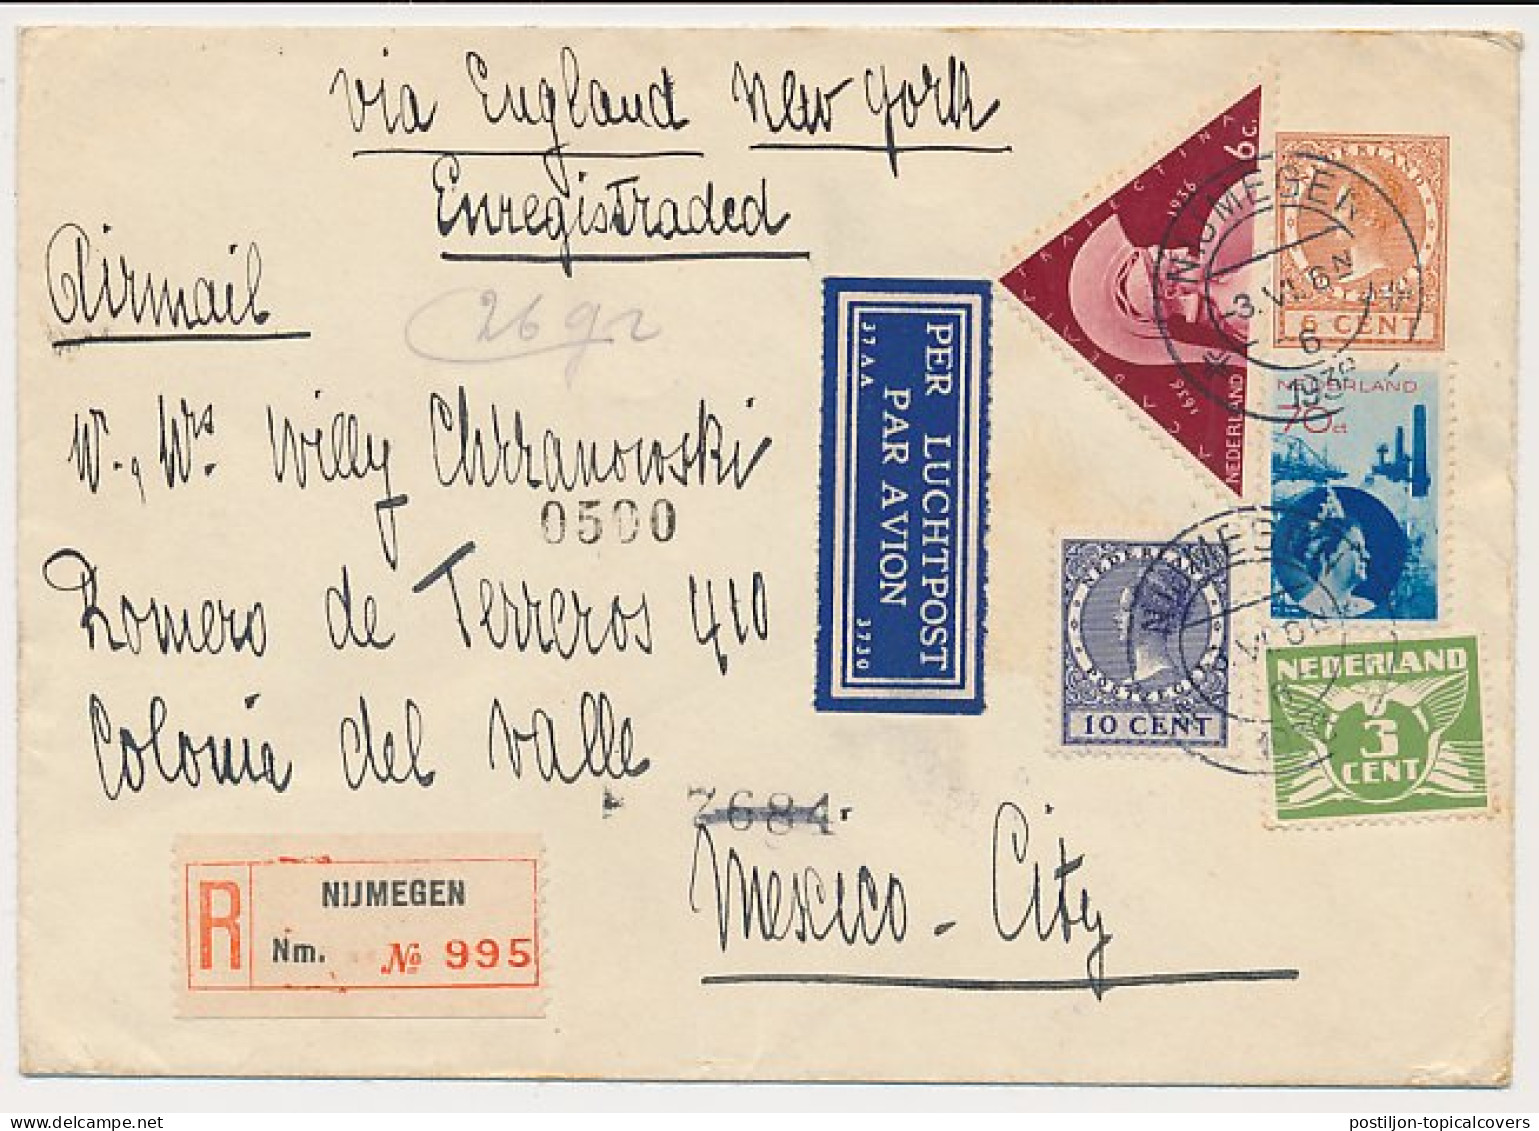 via England New York
Enregistraded
Airmail
26 gr
W., Wrs Willy Chrzanowski
0500
Romero de Terreros 410
Colonia del Valle
7684
Mexico - City
PER LUCHTPOST
PAR AVION
37 AA
3730
R
NIJMEGEN
Nm. No 995
6 c.
1936
1636
NEDERLAND
NIJMEGEN
-3.VI.6 N
6
1938
NEDERLAND
5 CENT
NEDERLAND
70 ct
NEDERLAND
POSTZEGEL
10 CENT
NIJMEGEN
NEDERLAND
3
CENT
postiljon-topicalcovers / delcampe.net